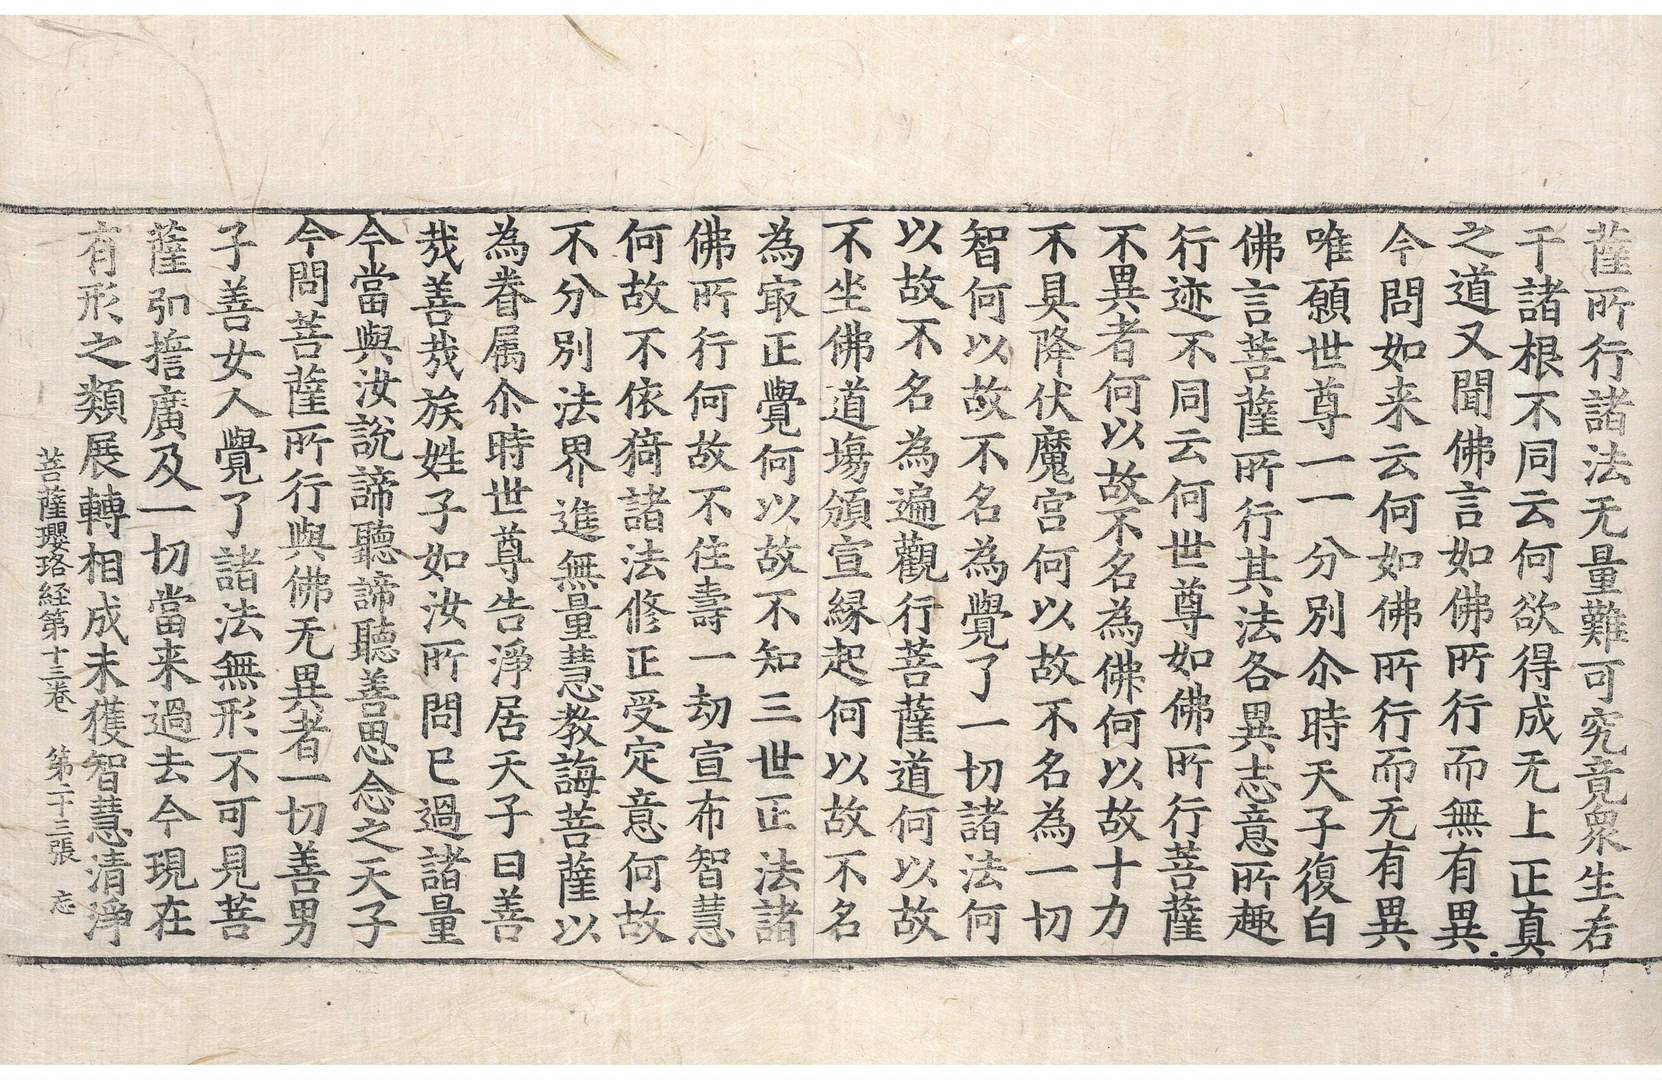 薩所行諸法无量難可究竟衆生若
干諸根不同云何欲得成无上正真
之道又聞佛言如佛所行而無有異
今問如来云何如佛所行而无有異
唯願世尊一一分別尒時天子復白
佛言菩薩所行其法各異志意所趣
行迹不同云何世尊如佛所行菩薩
不異者何以故不名為佛何以故十力
不具降伏魔宫何以故不名為一切
智何以故不名為覺了一切諸法何
以故不名為遍觀行菩薩道何以故
不坐佛道塲頒宣縁起何以故不名
為㝡正覺何以故不知三世正法諸
佛所行何故不住壽一劫宣布智慧
何故不依猗諸法修正受定意何故
不分別法界進無量慧教誨菩薩以
為眷属尒時世尊告淨居天子曰善
㦲善㦲族姓子如汝所問已過諸量
今當與汝說諦聽諦聽善思念之天子
今問菩薩所行與佛无異者一切善男
子善女人覺了諸法無形不可見菩
薩弘誓廣及一切當来過去今現在
有形之類展轉相成未獲智慧清淨
菩薩瓔珞経第十三卷 第二十三張 忘